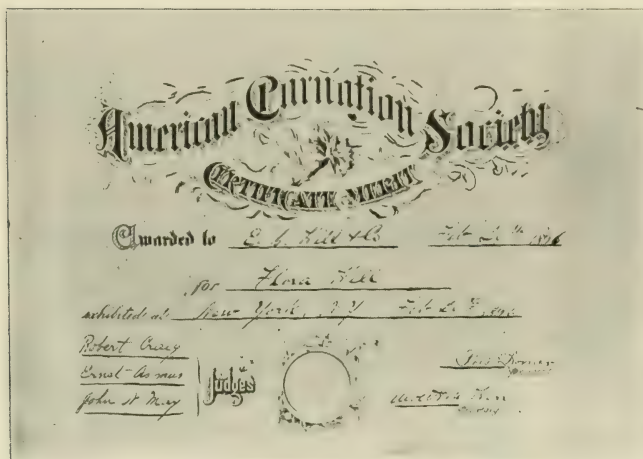 American Carnation Society
CERTIFICATE MERIT
Awarded to E. G. Hill & Co Feb 20th 1896
for Flora Hill
exhibited at New York, N.Y. Feb 20th, 1896
Robert Craig
Ernst Asmus
John N May
Judges